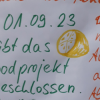 01.09.23
bt das
odprojekt
eschlossen.